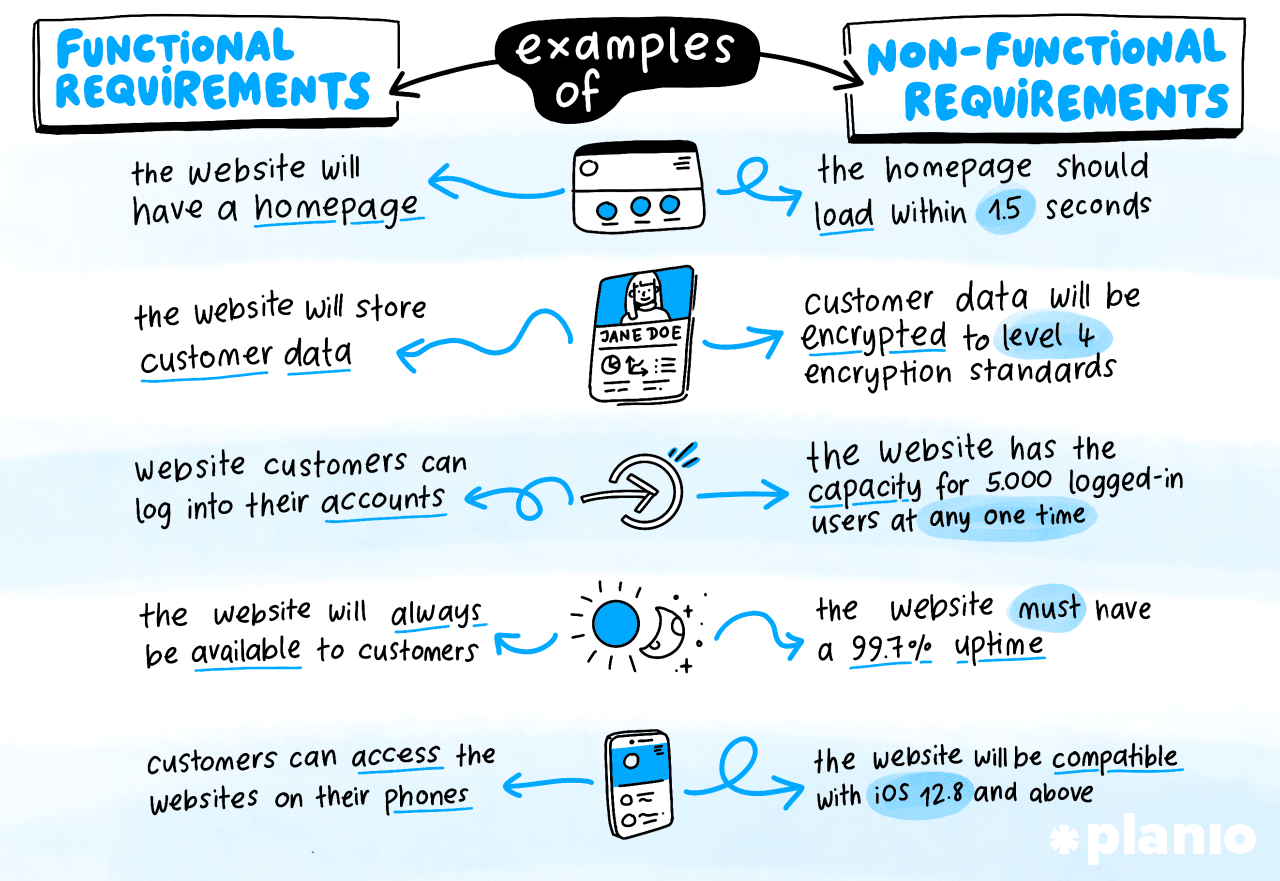 FUNCTIONAL
REQUIREMENTS
examples
of
NON-FUNCTIONAL
REQUIREMENTS
the website will
have a homepage
the homepage should
load within 1.5 seconds
the website will store
customer data
JANE DOE
customer data will be
encrypted to level 4
encryption standards
website customers can
log into their accounts
the website has the
capacity for 5.000 logged-in
users at any one time
the website will always
be available to customers
the website must have
a 99.7% uptime
customers can access the
websites on their phones
the website will be compatible
with iOS 12.8 and above
planio